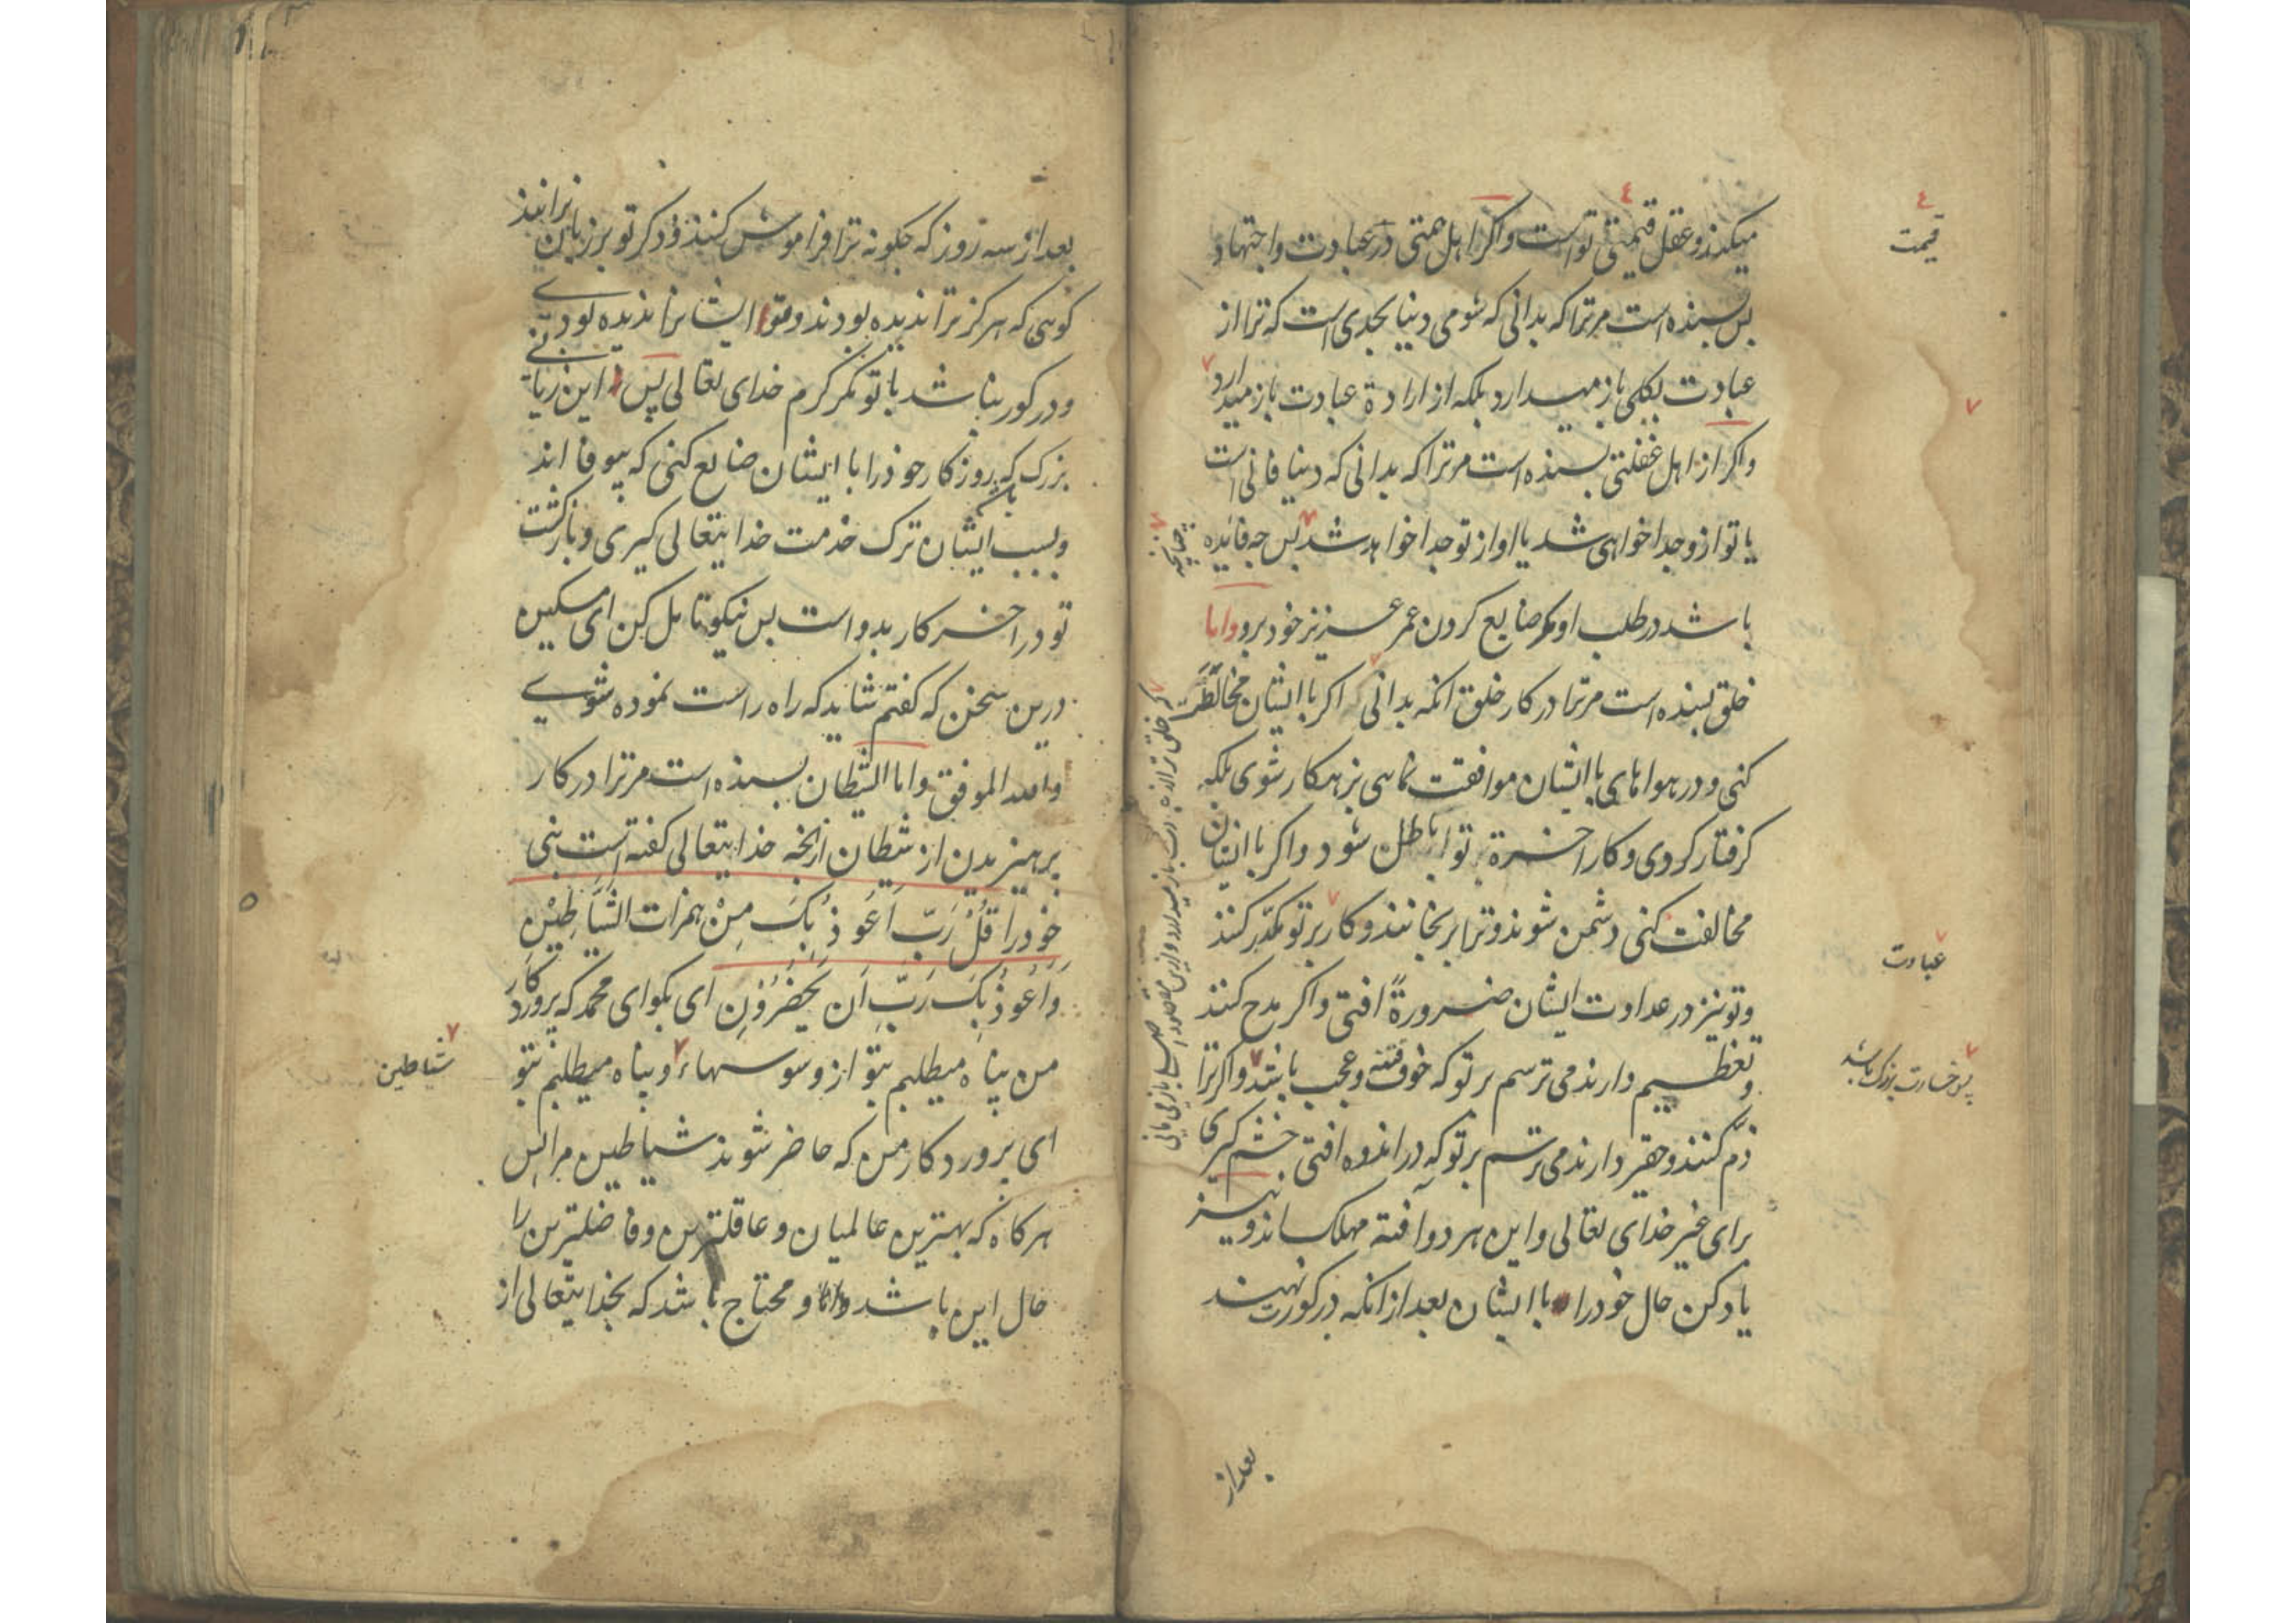 میکند و عقل قیمتی تو است و اکر از اهل همتی در عبادت و اجتهاد
بس بسنده است مرترا که بدانی که شومی دنیا بحدی است که ترا از
عبادت بکلی باز میدارد بلکه از ارادة عبادت باز میدارد
واکر از اهل غفلتی بسنده است مرترا که بدانی که دنیا فانی است
یا تو ازو جدا خواهی شد یا او از تو جدا خواهد شد بس چه فائده
باشد در طلب او مکر ضایع کردن عمر عزیز خود برو و اما
خلق بسنده است مرترا در کار خلق انکه بدانی اکر با ایشان مخالطت
کنی و در هواهای با ایشان موافقت نمایی بزهکار شوی بلکه
کرفتار کردی و کار اخرة تو باطل شود و اکر با ایشان
مخالفت کنی دشمن شوند و ترا برنجانند و کار بر تو مکدّر کنند
و تو نیز در عداوت ایشان ضرورةً افتی و اکر مدح کنند
و تعظیم دارند می ترسم بر تو که خوف فتنه و عجب باشد و اکر ترا
ذمّ کنند و حقیر دارند می ترسم بر تو که در اندوه افتی خشم کیری
برای غیر خدای تعالی و این هر دو افته مهلک اند و نیز
یاد کن حال خود را با ایشان بعد از انکه در کورت نهند
قیمت
چنانچه
عبادت
بعد از
بعد از سه روز که چکونه ترا فراموش کنند و ذکر تو بر زبان نرانند
کویی که هرکز ترا ندیده بودند و تو ایشانرا ندیده بودی
و در کور نباشد با تو مکر کرم خدای تعالی پس این زیانی
بزرک که روزکار خوذ را با ایشان ضایع کنی که بیوفا اند
و بسبب ایشان ترک خدمت خدایتعالی کیری و بازکشت
تو در اخر کار بدو است بس نیکو تامل کن ای مسکین
درین سخن که کفتم شاید که راه راست نموده شوی
والله الموفق و اما الشیطان بسنده است مرترا در کار
پرهیزیدن از شیطان انچه خدایتعالی کفته است نبی
خود را قُلْ رَبِّ اَعُوذُ بِکَ مِنْ همزات الشَّیَاطِیْنِ
وَاَعُوذُ بِکَ رَبِّ اَن یَحْضُرُوْنِ ای بکو ای محمد که پروردکار
من پناه میطلبم بتو از وسوسهاء و پناه میطلبم بتو
ای پروردکار من که حاضر شوند شیاطین مرا پس
هرکاه که بهترین عالمیان و عاقلترین و فاضلترین را
حال این باشد و محتاج باشد که بخدایتعالی از
شیاطین